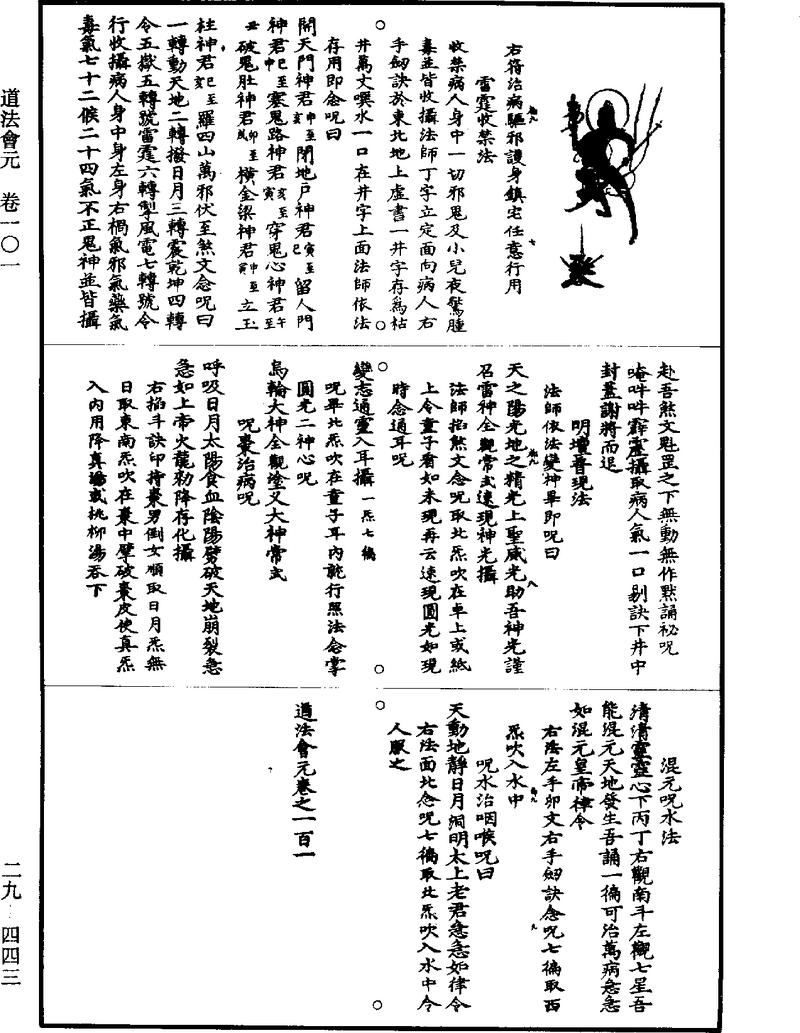 右符治病驅邪護身鎮宅任意行用
雷霆收禁法
收禁病人身中一切邪鬼及小兒夜驚腫
毒並皆收攝法師丁字立定面向病人右
手劒訣於東北地上虛書一井字存為枯
井萬丈噀水一口在井字上面法師依法
存用即念呪曰
開天門神君申至亥閉地戶神君寅至巳留人門
神君巳至申塞鬼路神君亥至寅穿鬼心神君午至
丑破鬼肚神君卯至戌橫金梁神君申至寅立玉
柱神君巳至亥羅四山萬邪伏至煞文念呪曰
一轉動天地二轉撥日月三轉震乾坤四轉
令五嶽五轉號雷霆六轉掣風電七轉號令
行收攝病人身中身左身右禍氣邪氣藥氣
毒氣七十二候二十四氣不正鬼神並皆攝
赴吾煞文魁罡之下無動無作默誦祕呪
唵吽吽霹靂攝取病人氣一口剔訣下井中
封蓋謝將而退
明壇普現法
法師依法變神畢即呪曰
天之陽光地之精光上聖威光助吾神光謹
召雷神全觀常式速現神光攝
法師掐煞文念呪取北炁吹在卓上或紙
上令童子看如未現再云速現圓光如現
時念通耳呪
變志通靈入耳攝一炁七徧
呪畢北炁吹在童子耳內就行照法念掌
圓光二神心呪
烏輪大神全觀塗又大神常式
呪棗治病呪
呼吸日月太陽食血陰陽劈破天地崩裂急
急如上帝火龍勑降存化攝
右掐斗訣印持棗男倒女順取日月炁無
日取東南炁吹在棗中擘破棗皮使真炁
入內用降真湯或桃柳湯吞下
混元呪水法
清清靈靈心下丙丁右觀南斗左觀七星吾
能混元天地發生吾誦一徧可治萬病急急
如混元皇帝律令
右法左手卯文右手劒訣念呪七徧取西
炁吹入水中
呪水治咽喉呪曰
天動地靜日月洞明太上老君急急如律令
右法面北念呪七徧取北炁吹入水中令
人服之
道法會元卷之一百一
道法會元 卷一〇一
二九 四四三